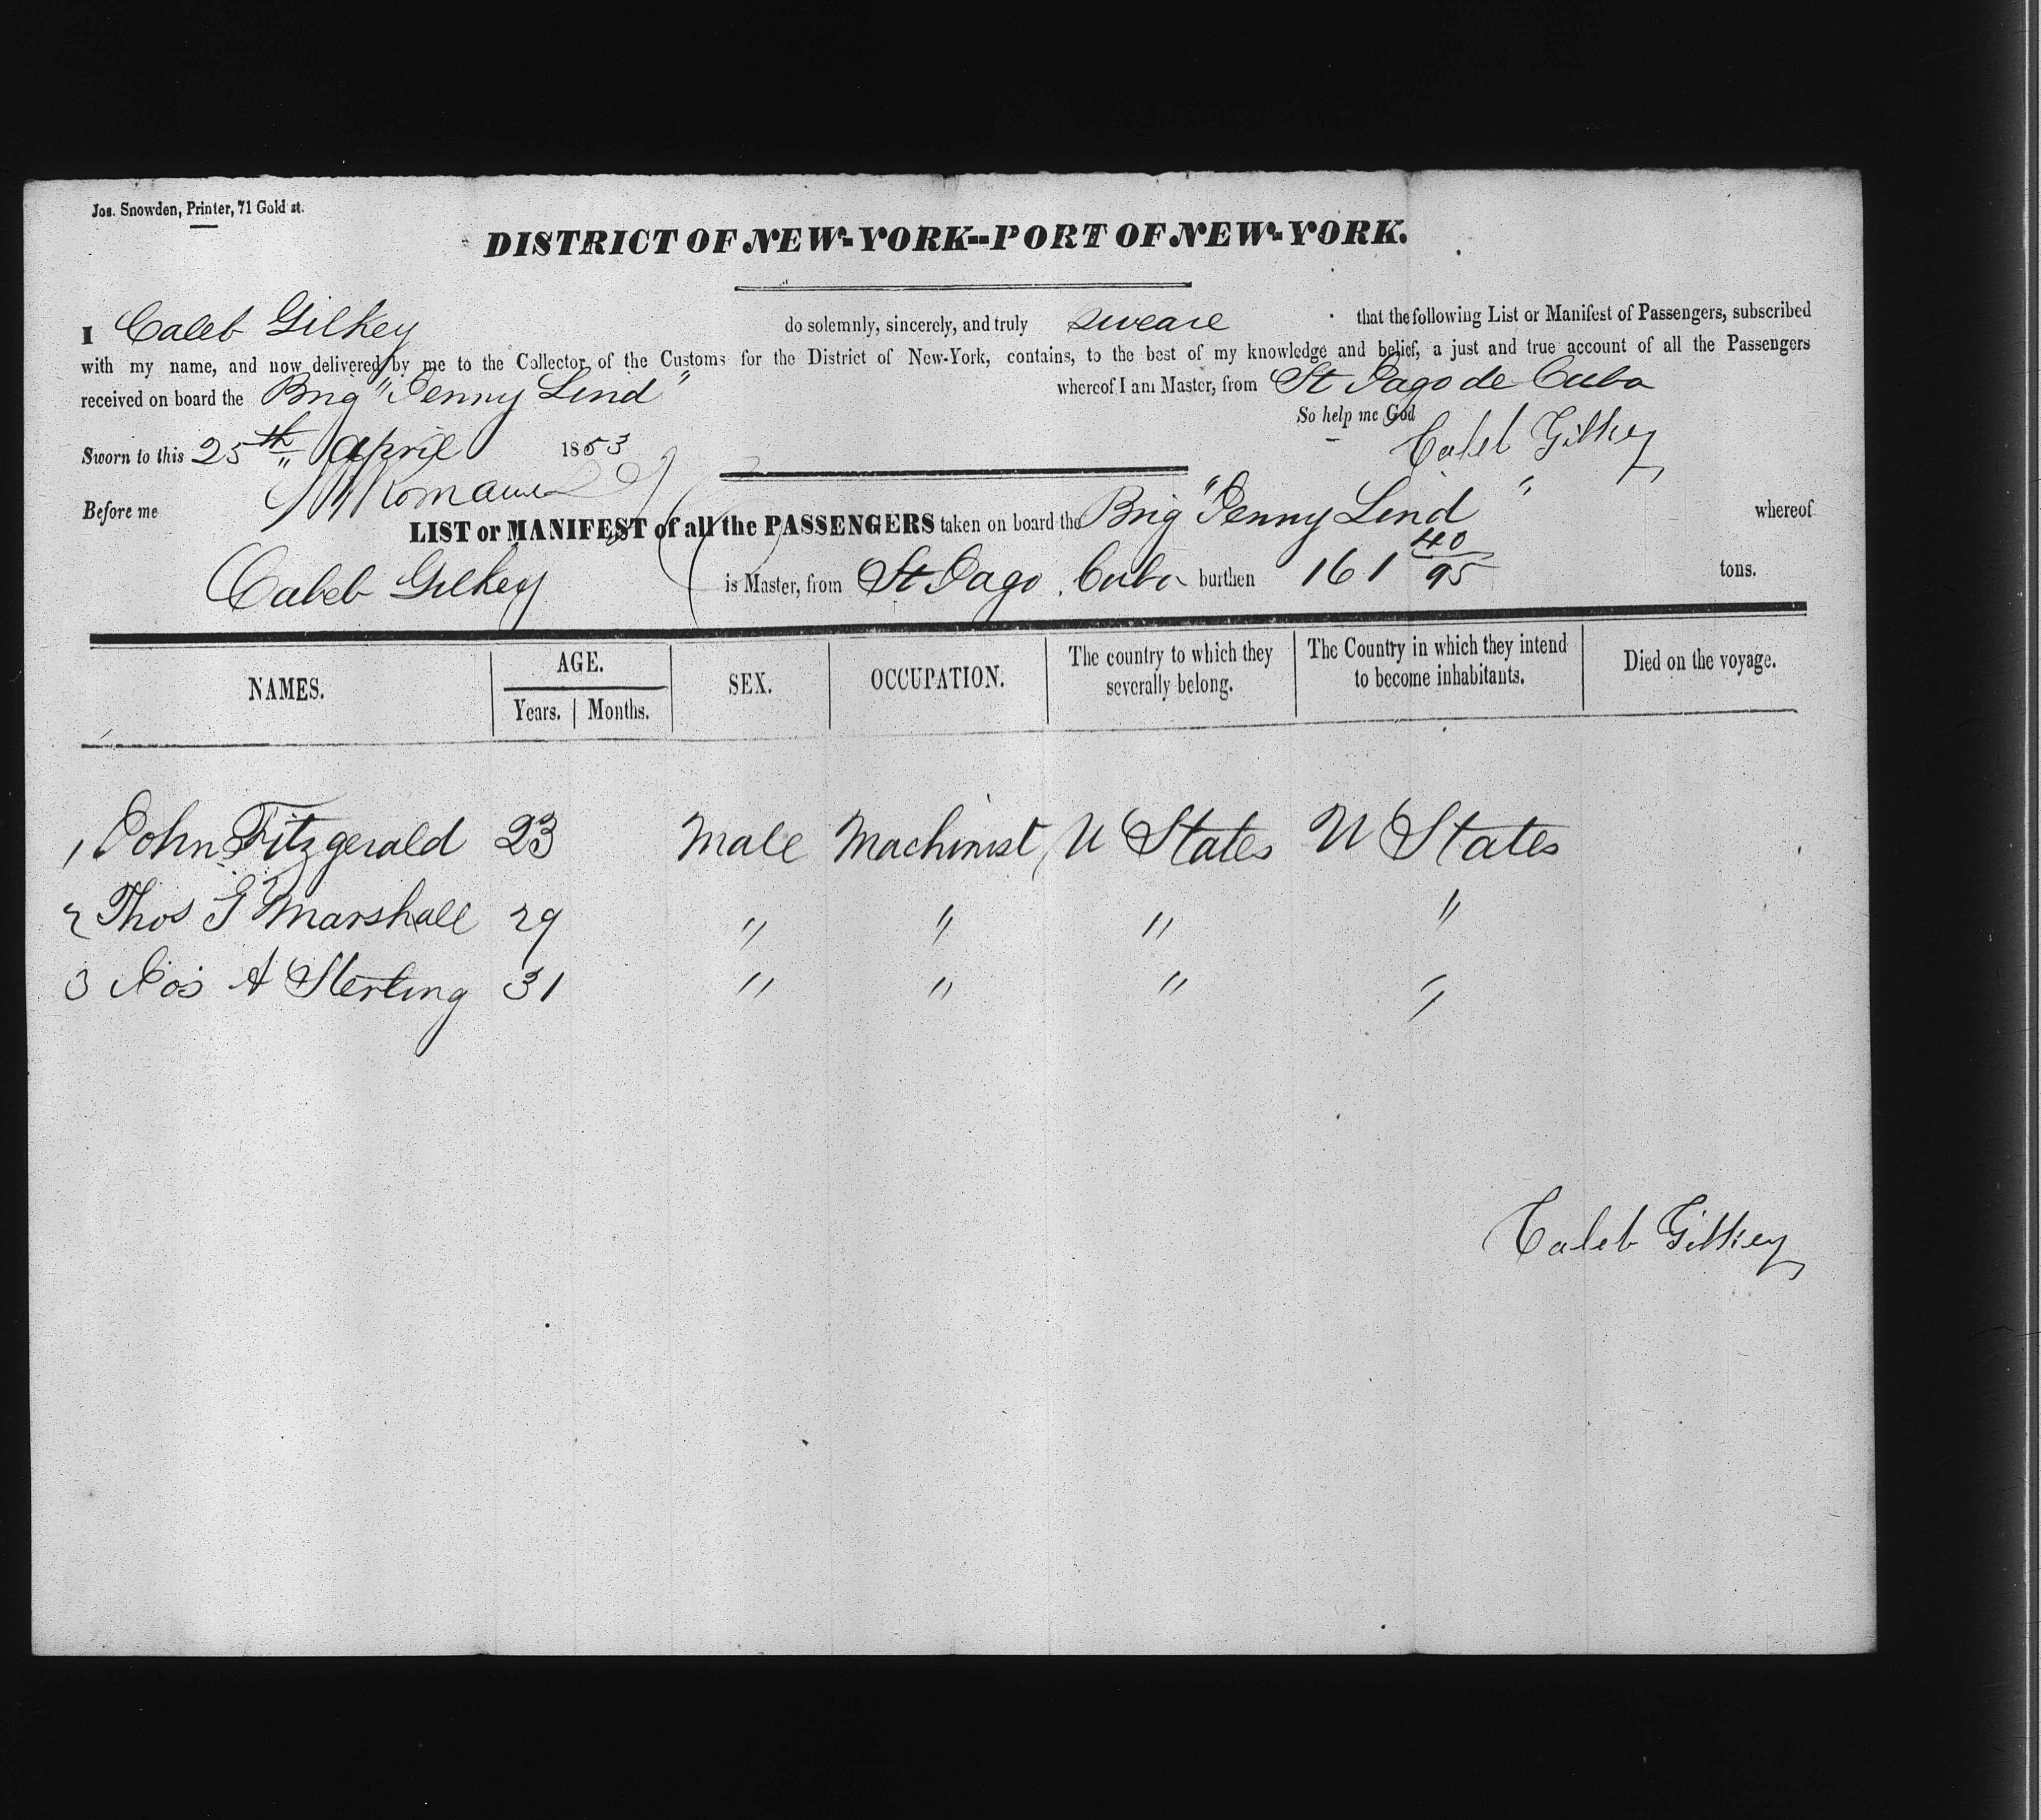 Jos. Snowden, Printer, 71 Gold st.
DISTRICT OF NEW-YORK--PORT OF NEW-YORK.
I Caleb Gilkey do solemnly, sincerely, and truly sweare that the following List or Manifest of Passengers, subscribed
with my name, and now delivered by me to the Collector of the Customs for the District of New-York, contains, to the best of my knowledge and belief, a just and true account of all the Passengers
received on board the Brig "Jenny Lind" whereof I am Master, from St Jago de Cuba
So help me God
Sworn to this 25th April 1853 Caleb Gilkey
Before me
LIST or MANIFEST of all the PASSENGERS taken on board the Brig "Jenny Lind" whereof
Caleb Gilkey is Master, from St Jago. Cuba burthen 161 40/95 tons.
NAMES. AGE. Years. Months. SEX. OCCUPATION. The country to which they severally belong. The Country in which they intend to become inhabitants. Died on the voyage.
1 John Fitzgerald 23 Male Machinist U States U States
2 Thos G Marshall 29 " " " "
3 Jos A Sterling 31 " " " "
Caleb Gilkey